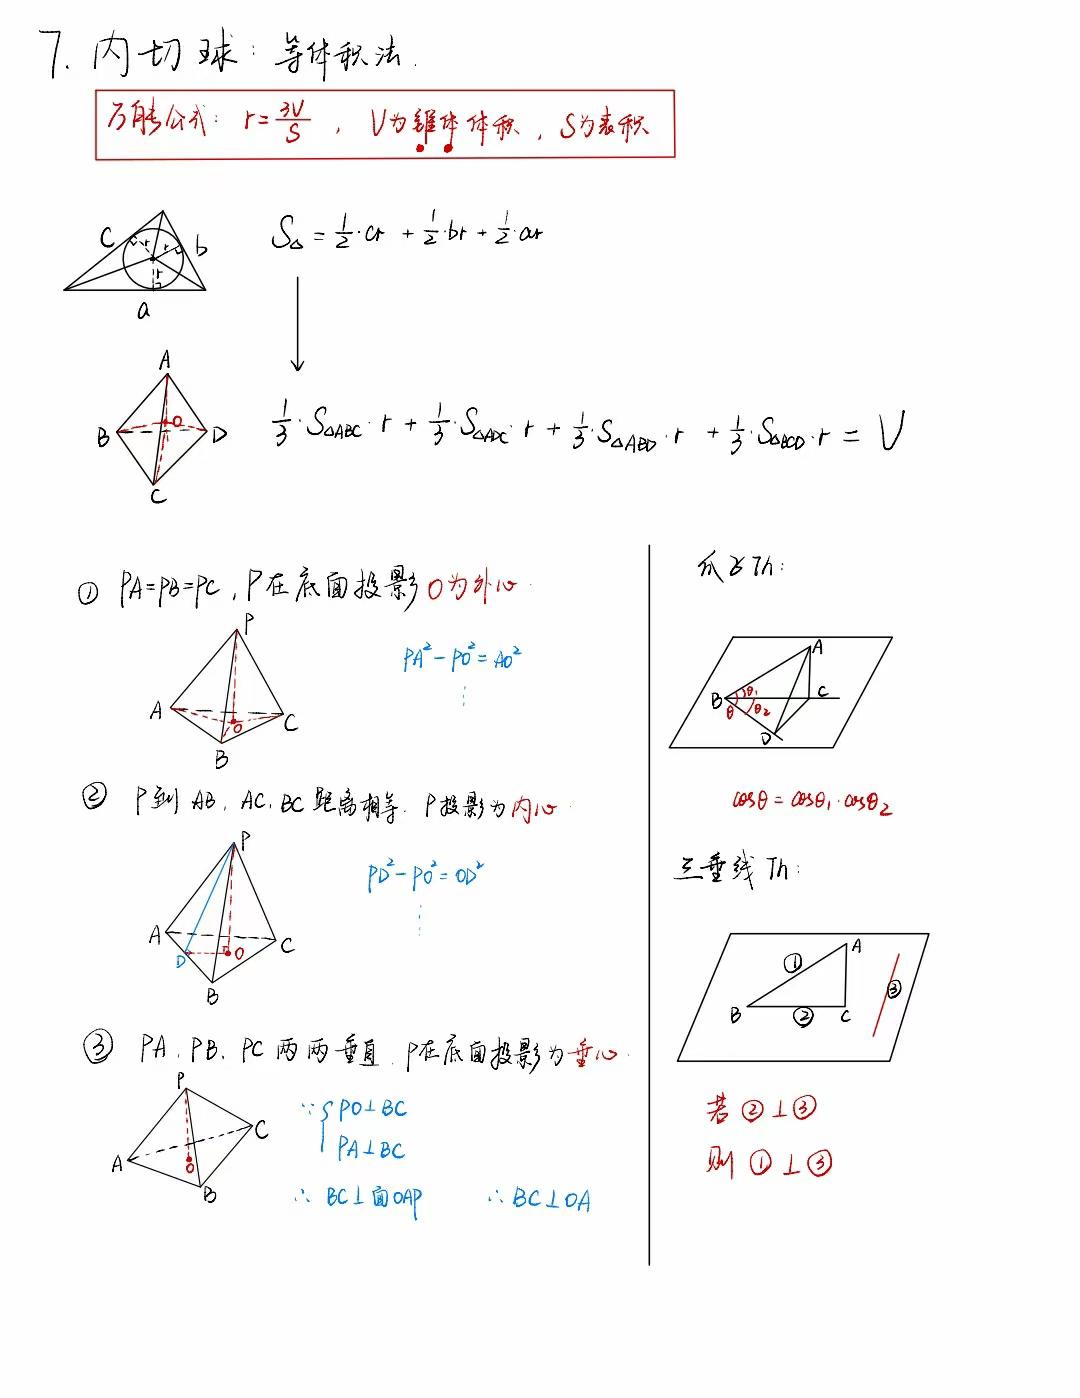 7. 内切球：等体积法.
万能公式: r=3V/S , V为锥体体积, S为表积
c b r r r a
S△ = 1/2·cr + 1/2·br + 1/2·ar
A B O D C
1/3·S△ABC·r + 1/3·S△ADC·r + 1/3·S△ABD·r + 1/3·S△BCD·r = V
① PA=PB=PC, P在底面投影O为外心.
P A O C B
PA²-PO²=AO²
② P到AB, AC, BC距离相等. P投影为内心.
P A D O C B
PD²-PO²=OD²
③ PA, PB, PC两两垂直. P在底面投影为垂心.
P A O C B
∵ { PO⊥BC
PA⊥BC
∴ BC⊥面OAP ∴ BC⊥OA
爪子Th:
A B θ₁ C θ θ₂ D
cosθ = cosθ₁·cosθ₂
三垂线Th:
A ① B ② C ③
若②⊥③
则①⊥③